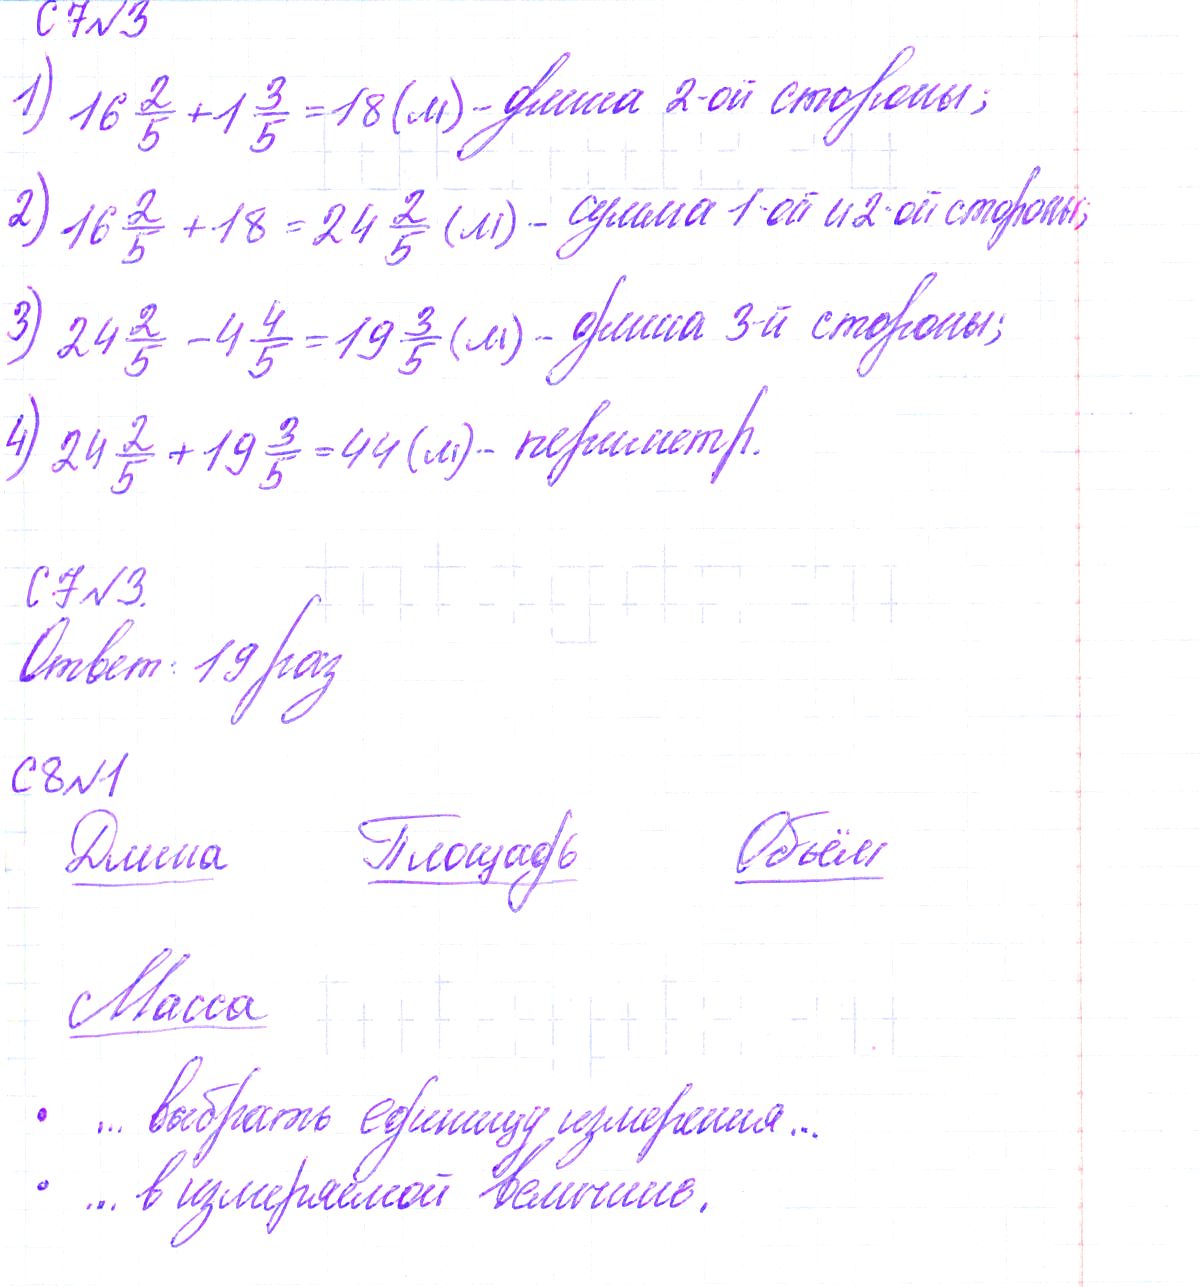 С7№3
1) 16 2/5 + 1 3/5 = 18 (м) - длина 2-ой стороны;
2) 16 2/5 + 18 = 24 2/5 (м) - сумма 1-ой и 2-ой стороны;
3) 24 2/5 - 4 4/5 = 19 3/5 (м) - длина 3-й стороны;
4) 24 2/5 + 19 3/5 = 44 (м) - периметр.
С7№3.
Ответ: 19 раз
С8№1
Длина Площадь Объём
Масса
• ... выбрать единицу измерения...
• ... в измеряемой величине.